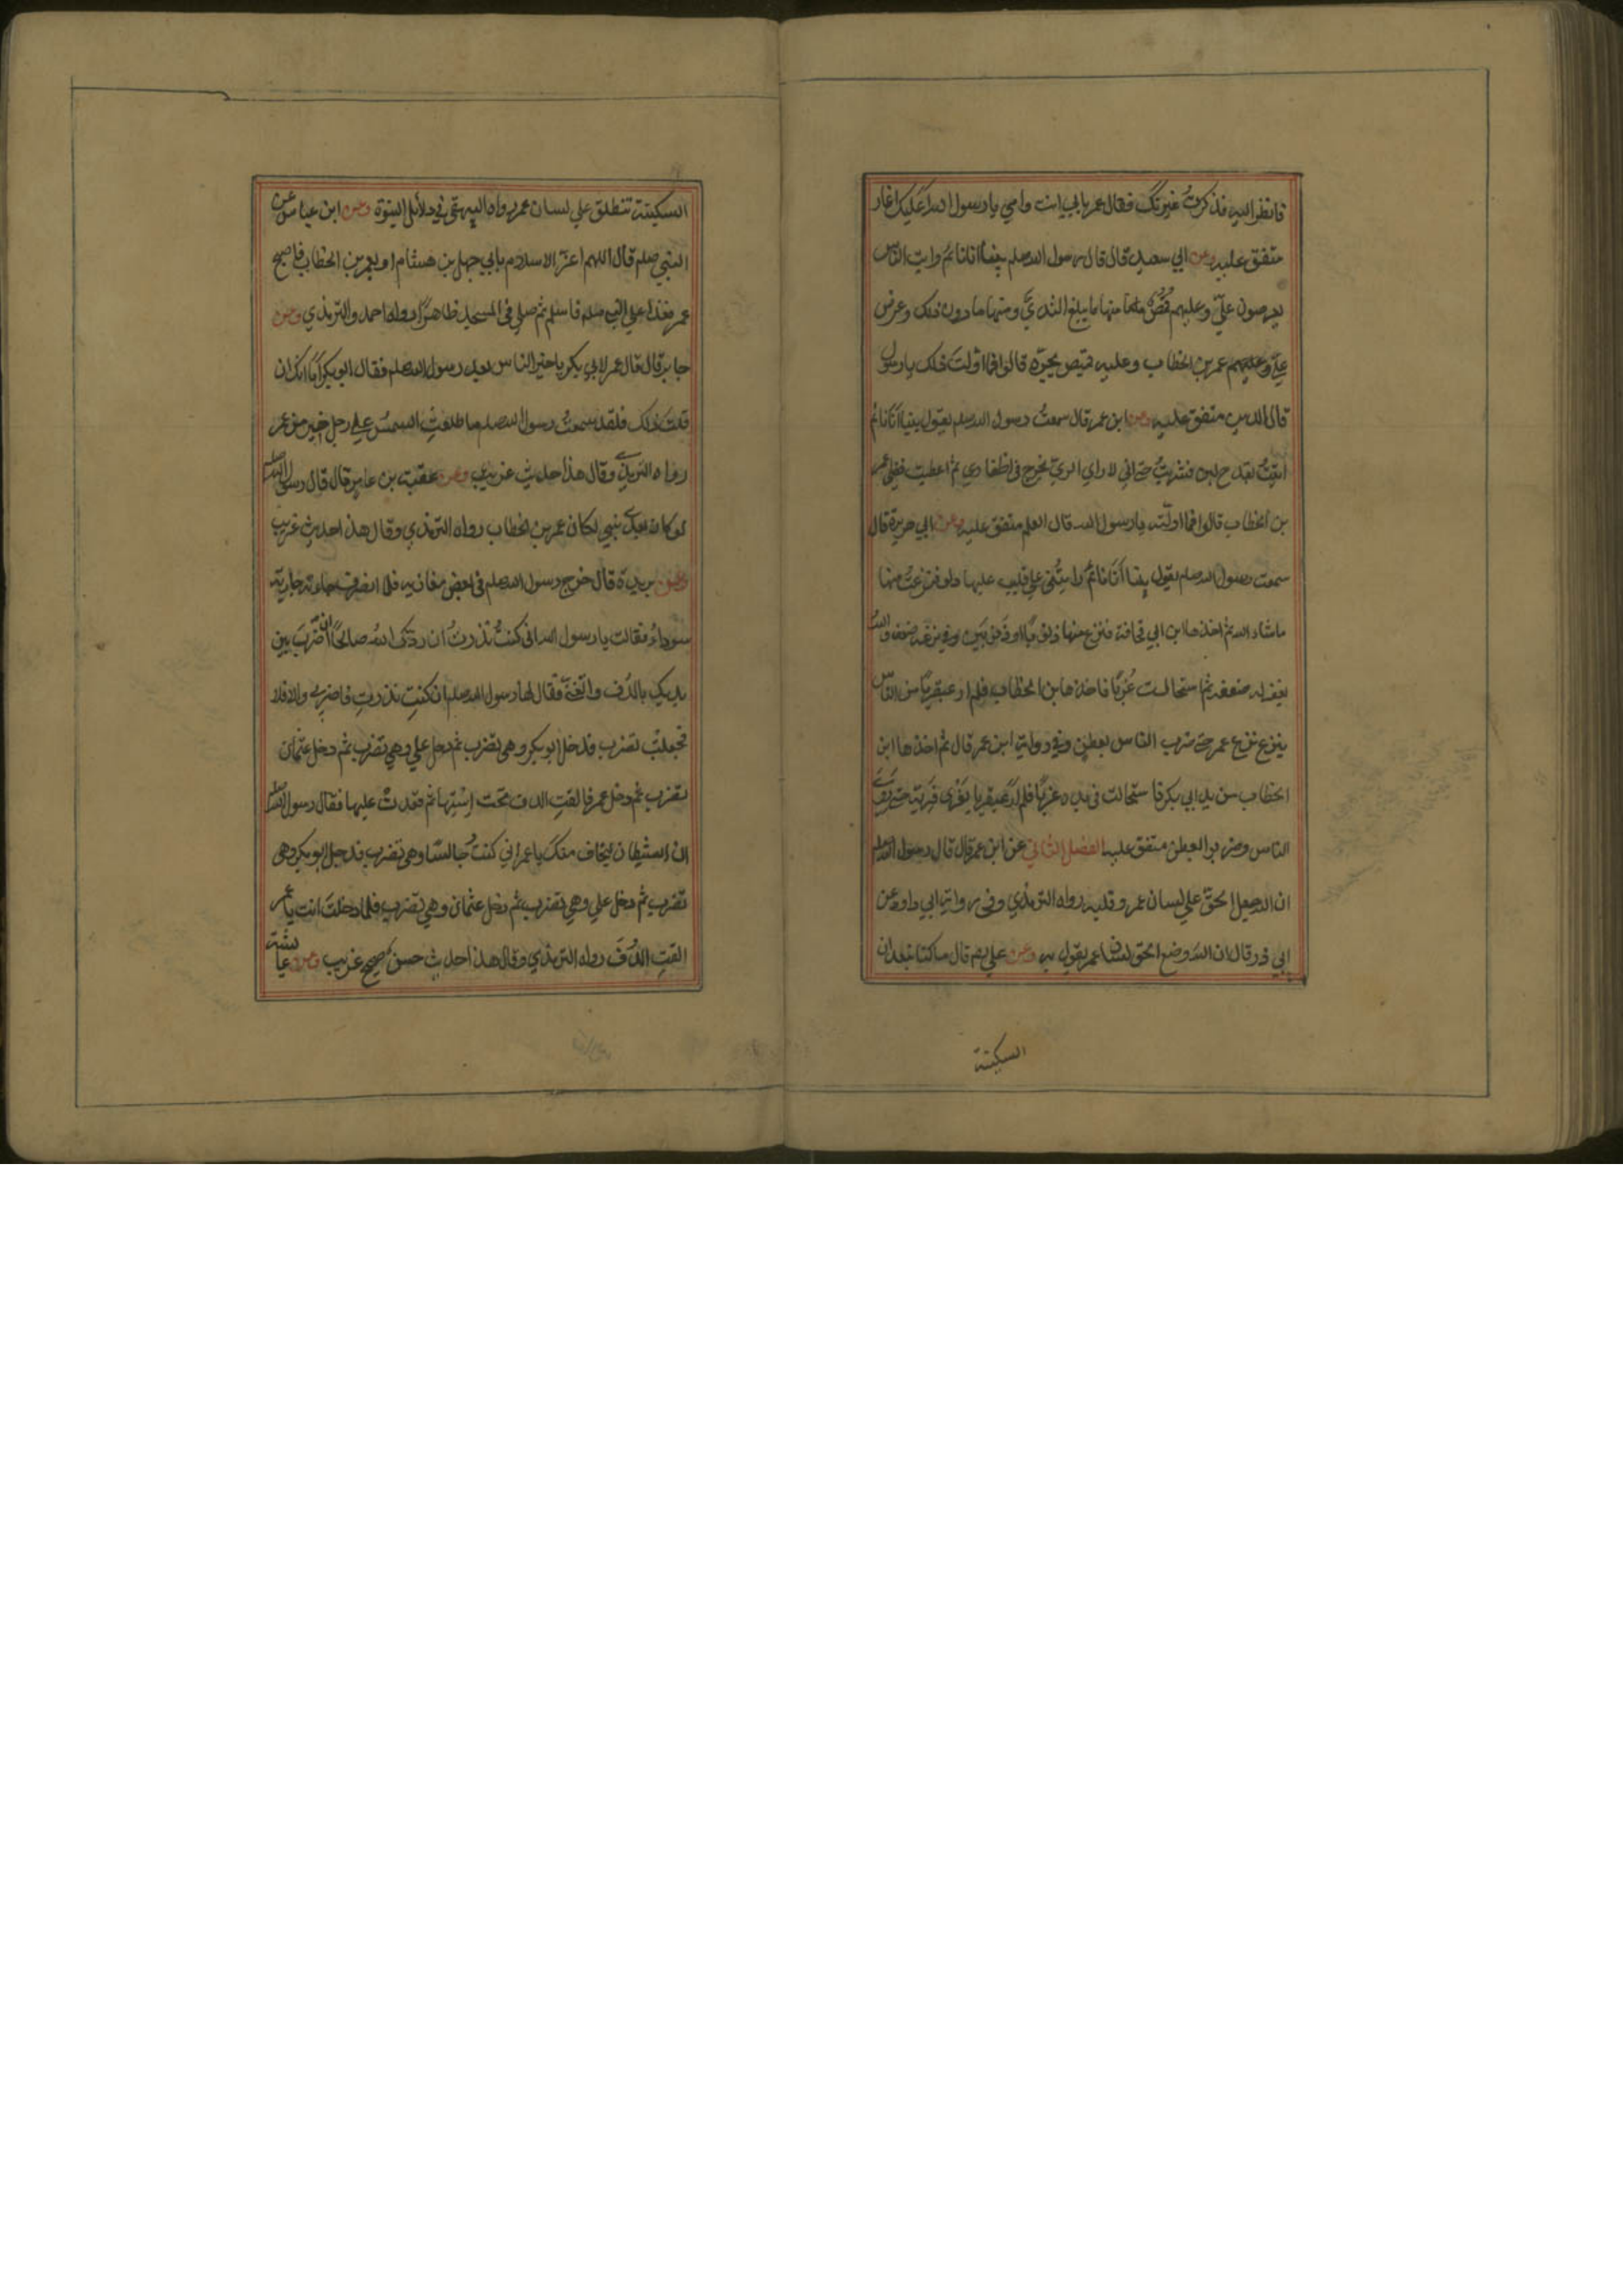 فانظر اليه فذكرتُ غيرتك فقال عمر بابي انت وامي يا رسول الله أعَلَيك اغار
متفق عليه وعن ابي سعيد قال قال رسول الله صلعم بينا انا نائم رايت الناس
يعرضون عليّ وعليهم قُمُصٌ منها ما يبلغ الثديَّ ومنها ما دون ذلك وعرض
عليّ عمر بن الخطاب وعليه قميص يجرّه قالوا فما اوّلتَ ذلك يا رسول
قال الدين متفق عليه وعن ابن عمر قال سمعتُ رسول الله صلعم يقول بينا انا نائم
اتيتُ بقدح لبن فشربتُ حتى اني لاراي الريّ يخرج في اظفاري ثم اعطيت فضلي عمر
بن الخطاب قالوا فما اوّلته يا رسول الله قال العلم متفق عليه وعن ابي هريرة قال
سمعت رسول الله صلعم يقول بينا انا نائم رايتُني على قليب عليها دلو فنزعتُ منها
ماشاء الله ثم اخذها ابن ابي قحافة فنزع منها ذنوبًا او ذنوبَين وفي نزعه ضعف والله
يغفر له ضعفه ثم استحالت غَربًا فاخذها ابن الخطاب فلم ار عبقريًا من الناس
ينزع نزع عمر حتى ضرب الناس بعطن وفي رواية ابن عمر قال ثم اخذها ابن
الخطاب من يد ابي بكر فاستحالت في يده غربًا فلم ار عبقريا يفرى فريَّه حتى روي
الناس وضربوا بعطن متفق عليه الفصل الثاني عن ابن عمر قال قال رسول الله صلعم
ان الله جعل الحق على لسان عمر وقلبه رواه الترمذي وفي رواية ابي داود عن
ابي ذر قال ان الله وضع الحق على لسان عمر يقول به وعن علي قال ما كنا نبعد ان
السكينة
السكينة تنطلق علي لسان عمر رواه البيهقي في دلائل النبوة وعن ابن عباس عن
النبي صلعم قال اللهم اعز الاسلام بابي جهل بن هشام او بعمر بن الخطاب فاصبح
عمر فغدا علي النبي صلعم فاسلم ثم صلي في المسجد ظاهرًا رواه احمد والترمذي وعن
جابر قال قال عمر لابي بكر يا خير الناس بعد رسول الله صلعم فقال ابو بكر أما انك ان
قلتَ ذلك فلقد سمعتُ رسول الله صلعم ما طلعتِ الشمس علي رجل خير من عمر
رواه الترمذي وقال هذا حديث غريب وعن عقبة بن عامر قال قال رسول الله صلعم
لو كان بعدي نبي لكان عمر بن الخطاب رواه الترمذي وقال هذا حديث غريب
وعن بريدة قال خرج رسول الله صلعم في بعض مغازيه فلما انصرف جاءته جارية
سوداءُ فقالت يا رسول الله اني كنتُ نذرتُ ان ردّك اللهُ صالحًا ان اضربَ بين
يديك بالدُف واتغنّي فقال لها رسول الله صلعم ان كنتِ نذرتِ فاضربي والا فلا
فجعلتْ تضرب فدخل ابو بكر وهي تضرب ثم دخل علي وهي تضرب ثم دخل عثمان
تضرب ثم دخل عمر فالقتِ الدف تحت اِسْتِها ثم قعدتْ عليها فقال رسول الله صلعم
ان الشيطان ليخاف منكَ يا عمر اني كنتُ جالسًا وهي تضرب فدخل ابو بكر وهي
تضرب ثم دخل علي وهي تضرب ثم دخل عثمان وهي تضرب فلما دخلتَ انت يا عمر
القتِ الدُّفَ رواه الترمذي وقال هذا حديث حسنٌ صحيح غريب وعن عايشة